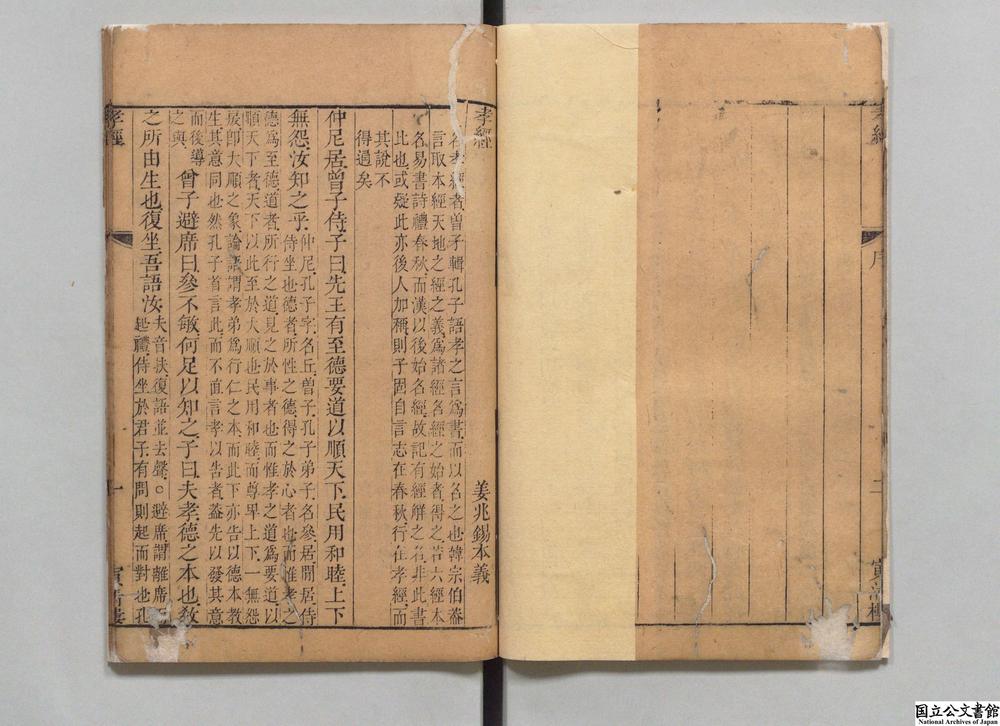 孝經
姜兆錫本義
名孝經者曾子輯孔子語孝之言爲書而以名之也韓宗伯菼
言取本經天地之經之義爲諸經名經之始者得之若六經本
名易書詩禮春秋而漢以後始名經故記有經解之名非此書
比也或疑此亦後人加稱則子固自言志在春秋行在孝經而
其說不
得過矣
仲尼居曾子侍子曰先王有至德要道以順天下民用和睦上下
無怨汝知之乎仲尼孔子字名丘曾子孔子弟子名參居閒居侍
侍坐也德者所性之德得之於心者也而惟孝之
德爲至德道者所行之道見之於事者也而惟孝之道爲要道以
順天下者天下以此至於大順也民用和睦而尊卑上下一無怨
戾卽大順之象論語謂孝弟爲行仁之本而此下亦告以德本教
生其意同也然孔子首言此而不直言孝以告者蓋先以發其意
而後導
之與
曾子避席曰參不敏何足以知之子曰夫孝德之本也教
之所由生也復坐吾語汝夫音扶復語並去聲○避席謂離席而
起禮侍坐於君子有問則起而對也孔
孝經
一
序
二
国立公文書館
National Archives of Japan